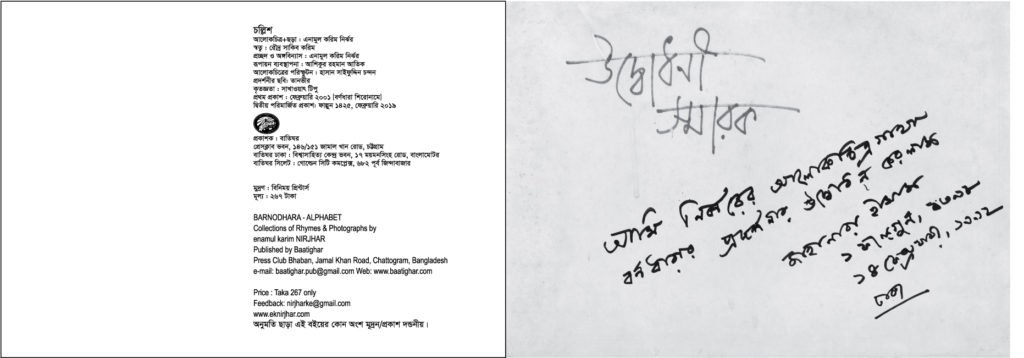 চল্লিশ
আলোকচিত্র+ছড়া : এনামুল করিম নির্ঝর
স্বত্ব : রৌদ্র সাকিব করিম
প্রচ্ছদ ও অঙ্গবিন্যাস : এনামুল করিম নির্ঝর
রূপায়ন ব্যবস্থাপনা : আশিকুর রহমান আতিক
আলোকচিত্রের পরিস্ফুটন : হাসান সাইফুদ্দিন চন্দন
প্রদর্শনীর ছবি: তানভীর
কৃতজ্ঞতা : সাখাওয়াৎ টিপু
প্রথম প্রকাশ : ফেব্রুয়ারি ২০০১ [বর্ণধারা শিরোনামে]
দ্বিতীয় পরিমার্জিত প্রকাশ: ফাল্গুন ১৪২৫, ফেব্রুয়ারি ২০১৯
প্রকাশক : বাতিঘর
প্রেসক্লাব ভবন, ১৪৬/১৫১ জামাল খান রোড, চট্টগ্রাম
বাতিঘর ঢাকা : বিশ্বসাহিত্য কেন্দ্র ভবন, ১৭ ময়মনসিংহ রোড, বাংলামোটর
বাতিঘর সিলেট : গোল্ডেন সিটি কমপ্লেক্স, ৬৮২ পূর্ব জিন্দাবাজার
মুদ্রণ : বিনিময় প্রিন্টার্স
মূল্য : ২৬৭ টাকা
BARNODHARA - ALPHABET
Collections of Rhymes & Photographs by
enamul karim NIRJHAR
Published by Baatighar
Press Club Bhaban, Jamal Khan Road, Chattogram, Bangladesh
e-mail: baatighar.pub@gmail.com Web: www.baatighar.com
Price : Taka 267 only
Feedback: nirjharke@gmail.com
www.eknirjhar.com
অনুমতি ছাড়া এই বইয়ের কোন অংশ মুদ্রন/প্রকাশ দন্ডনীয়।
উদ্বোধনী
স্মারক
আমি নির্ঝরের আলোকচিত্র গাথা
বর্ণধারার প্রদর্শনীর উদ্বোধন করলাম
জাহানারা ইমাম
১ ফাল্গুন, ১৩৯৮
১৪ ফেব্রুয়ারী, ১৯৯২
ঢাকা